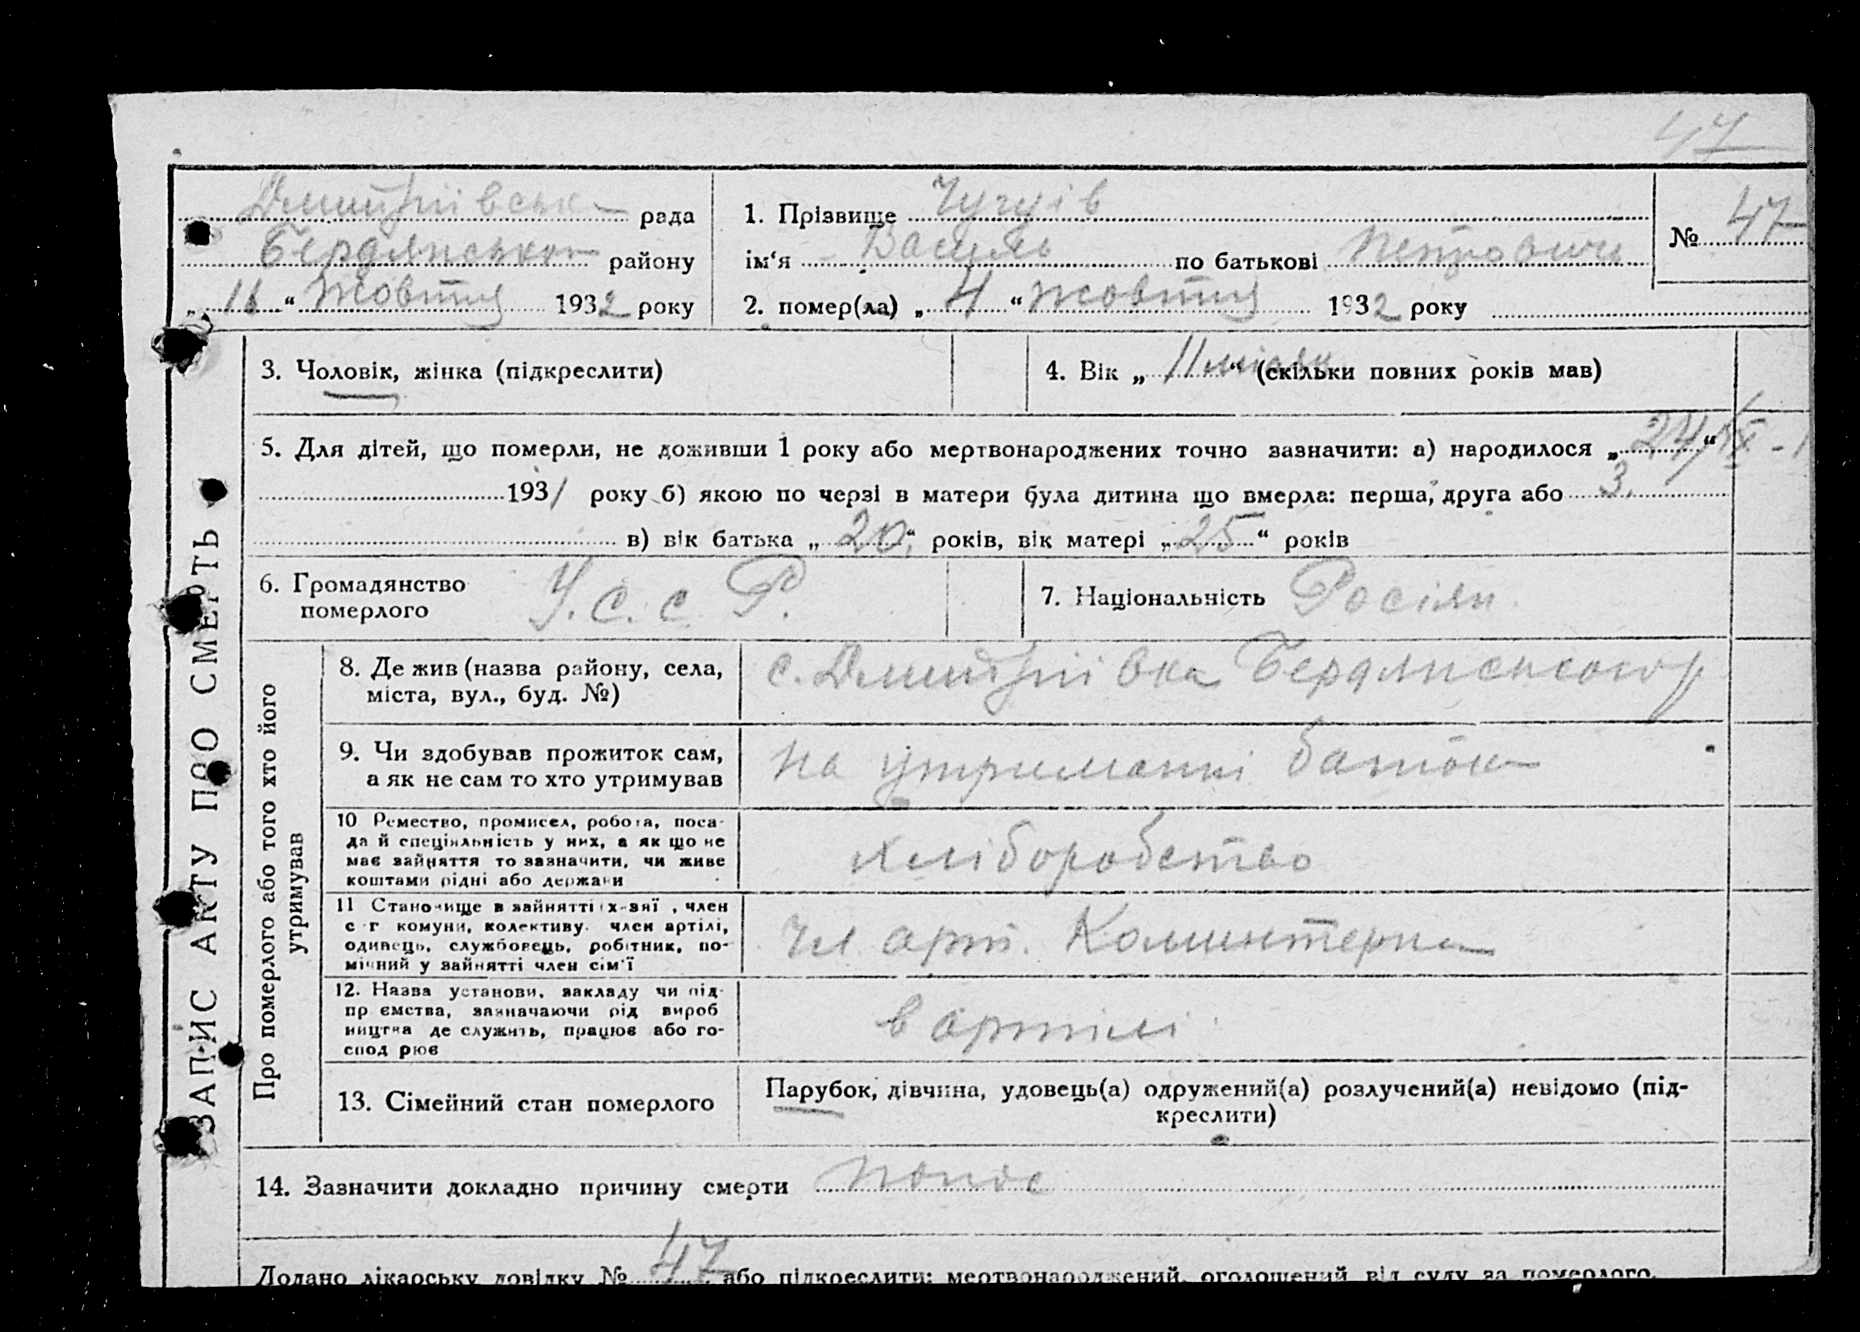 47
Дмитріівська рада
Бердянського району
„ 11 “ жовтня 1932 року
1. Прізвище Чугуів
ім‘я Василь по батькові Петрович
2. помер(ла) „ 4 “ жовтня 1932 року
№ 47
3. Чоловік, жінка (підкреслити)
4. Вік „ 11 місяц “ (скільки повних років мав)
5. Для дітей, що померли, не доживши 1 року або мертвонароджених точно зазначити: а) народилося „ 24/XI - 1 “
1931 року б) якою по черзі в матери була дитина що вмерла: перша, друга або 3.
в) вік батька „ 20 “ років, вік матері „ 25 “ років
6. Громадянство
померлого У.С.С.Р.
7. Національність Росіян
ЗАПИС АКТУ ПРО СМЕРТЬ
Про померлого або того хто його
утримував
8. Де жив (назва району, села,
міста, вул., буд. №)
с. Дмитріівка Бердянського р
9. Чи здобував прожиток сам,
а як не сам то хто утримував
на утриманні батька
10 Ремество, промисел, робота, поса-
да й спеціяльність у них, а як що не
має зайняття то зазначити, чи живе
коштами рідні або держави
хліборобство
11 Становище в зайнятті х-зяї , член
с-г комуни, колективу. член артілі,
одинець, службовець, робітник, по-
мічний у зайнятті член сім‘ї
Чл. арт. Коминтерна
12. Назва установи, закладу чи під-
пр ємства, зазначаючи рід вироб
ництва де служить, працює або го-
спод рює
в артілі
13. Сімейний стан померлого
Парубок, дівчина, удовець(а) одружений(а) розлучений(а) невідомо (під-
креслити)
14. Зазначити докладно причину смерти понос
Додано лікарську довідку № 47 або підкреслити: мертвонароджений, оголошений від суду за померлого.